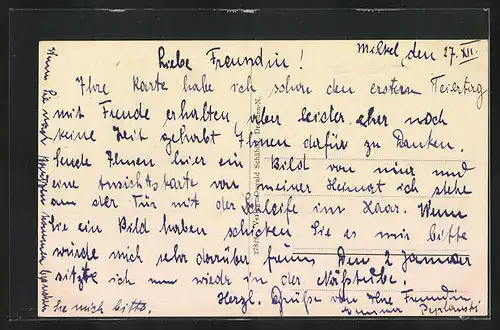 Milkel, den 27. XII.
Liebe Freundin!
Ihre Karte habe ich schon den erstern Feiertag
mit Freude erhalten, aber leider aber noch
keine Zeit gehabt Ihnen dafür zu Danken.
Sende Ihnen hier ein Bild von mir und
eine Ansichtskarte von meiner Heimat ich stehe
an der Tür mit der Schleife im Haar. Wenn
Sie ein Bild haben schicken Sie es mir bitte
würde mich sehr darüber freuen Den 2 Januar
sitzte ich nun wieder in der Nähstube.
Herzl. Grüße von Ihre Freundin
Sie mich bitte.
Wenn Sie nach Bautzen kommen besuchen
27828 Verlag Oswald Schäfer, Dresden-N.